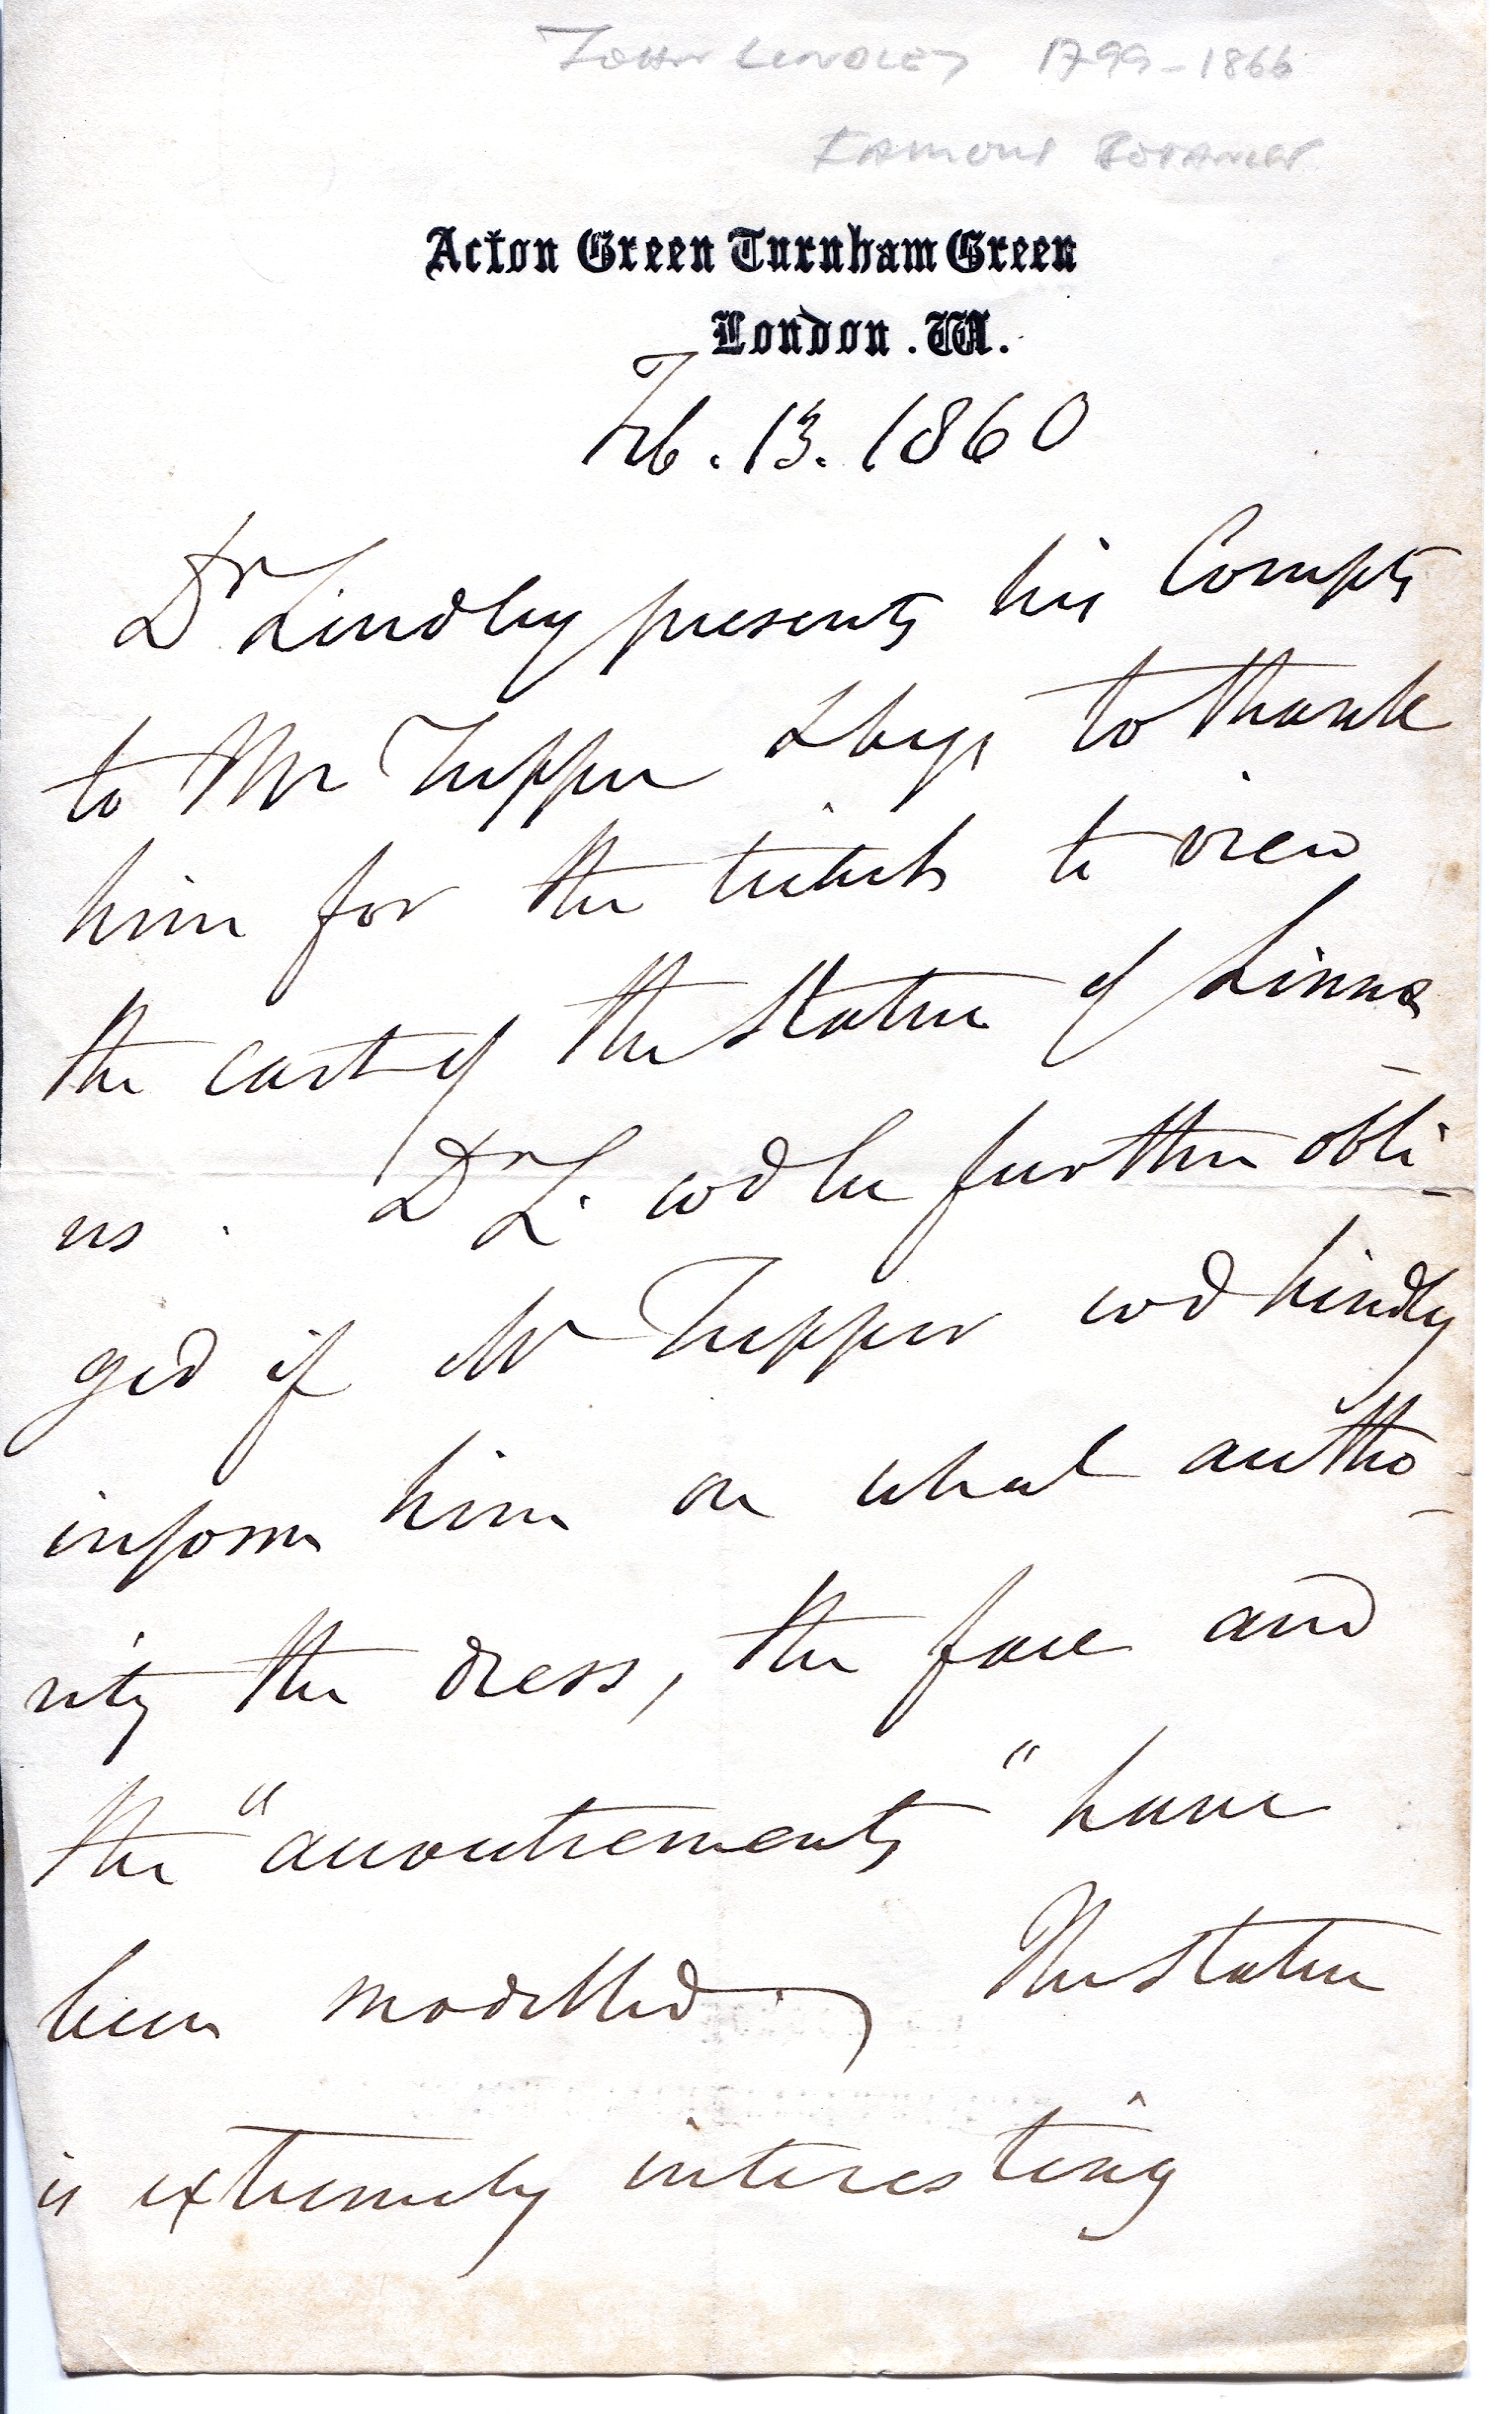 JOHN LINDLEY 1799-1866
FAMOUS BOTANIST
Acton Green Turnham Green
London. W.
Feb. 13. 1860
Dr Lindley presents his Compts
to Mr Tupper & begs to thank
him for the tickets to view
the cast of the Statue of Linnæ
us . Dr L. wd be further obli-
ged if Mr Tupper wd kindly
inform him on what autho-
rity the dress, the face and
the "accoutrements" have
been modelled. The Statue
is extremely interesting